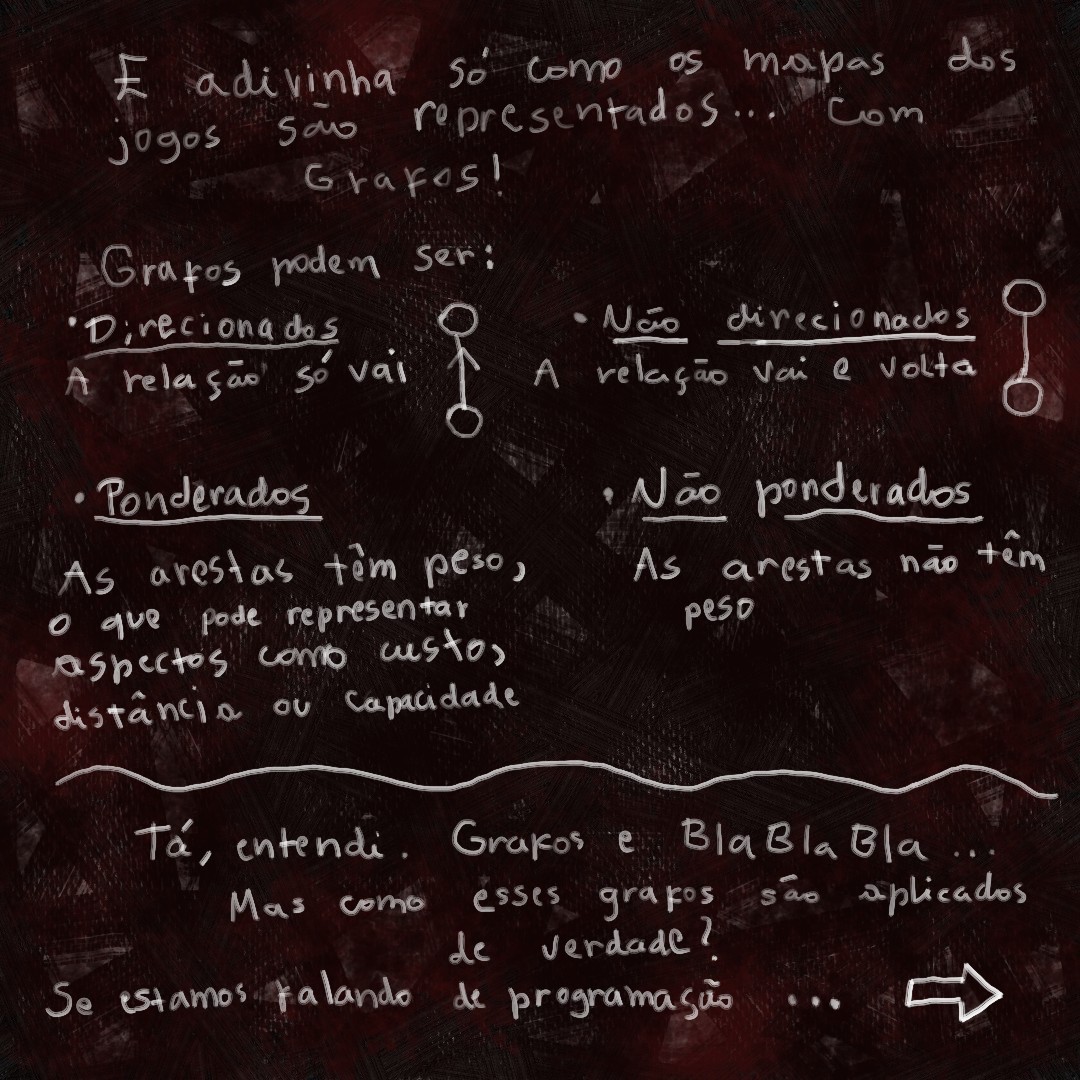 E adivinha só como os mapas dos
jogos são representados... Com
Grafos!
Grafos podem ser:
• Direcionados
A relação só vai
• Não direcionados
A relação vai e volta
• Ponderados
As arestas têm peso,
o que pode representar
aspectos como custo,
distância ou capacidade
• Não ponderados
As arestas não têm
peso
Tá, entendi. Grafos e BlaBlaBla...
Mas como esses grafos são aplicados
de verdade?
Se estamos falando de programação ...